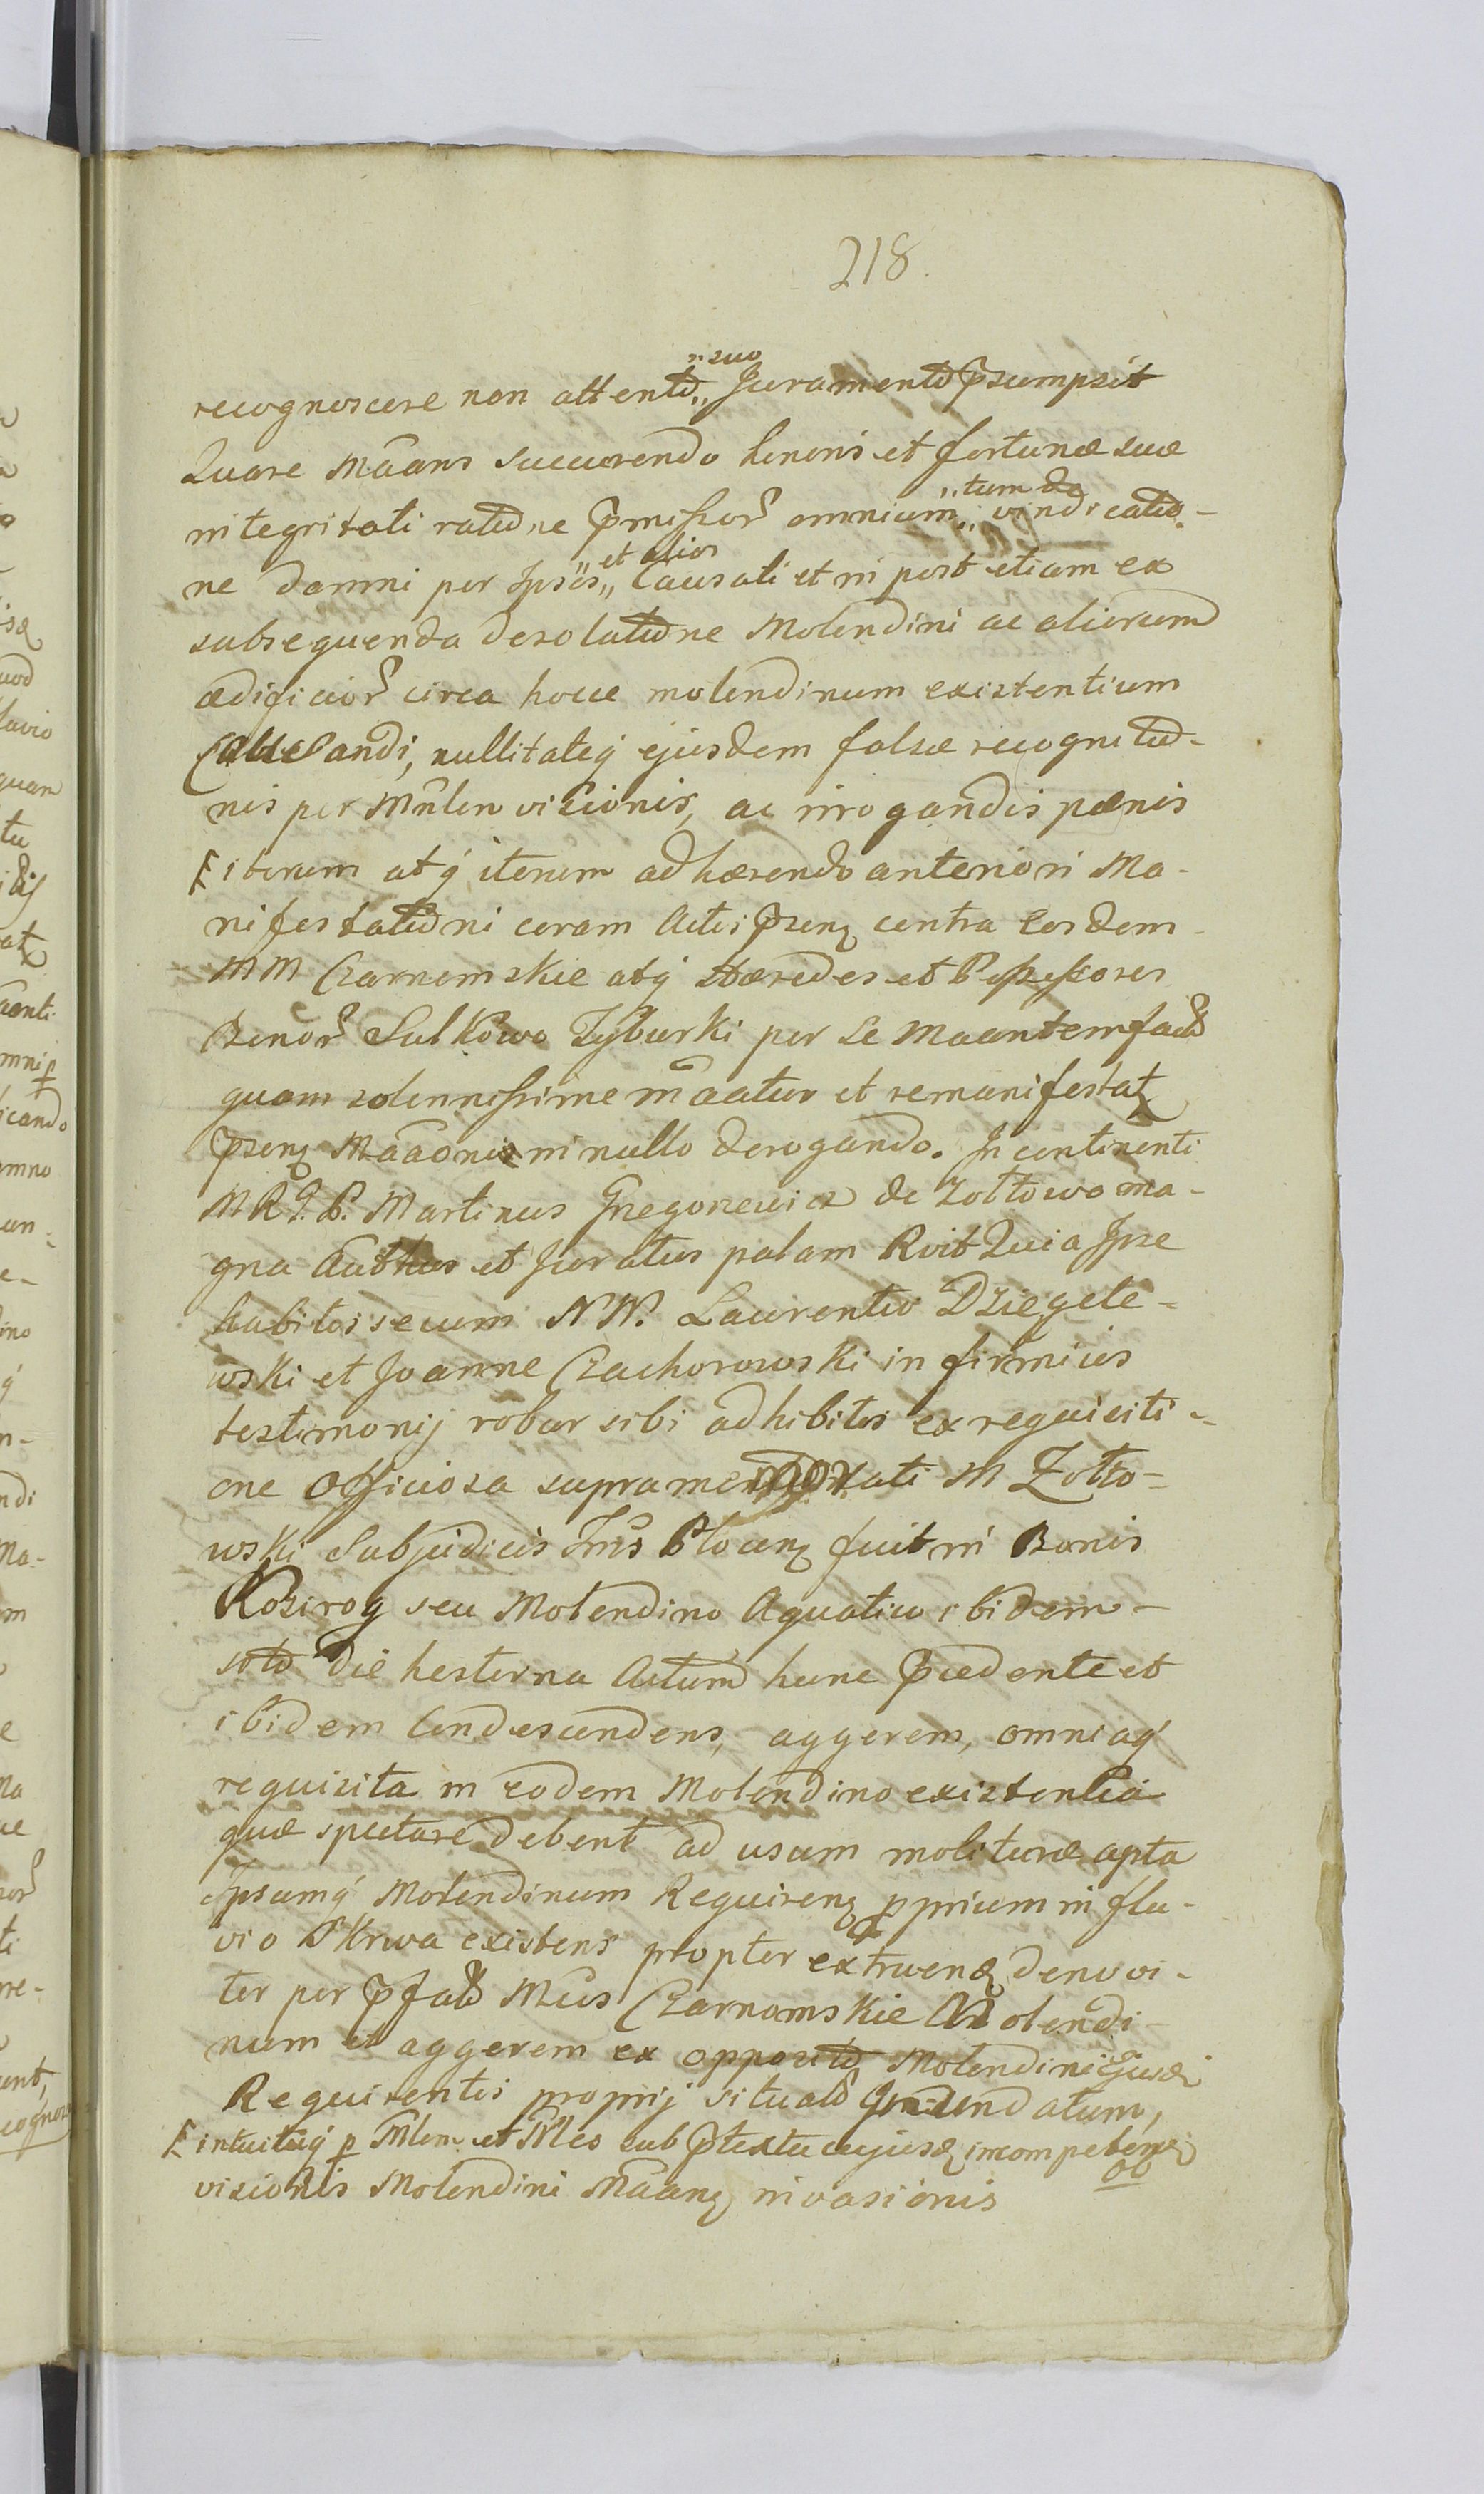 218.
recognoscere non attento „suo„ Juramento p̄sumpsit
Quare Māans succurendo honoris et fortunæ suæ
integritati ratione p̄missor omnium „tum de„ vindicatio-
ne damni per Ipsos „et alios„ Causati et in post etiam ex
subsequenda desolatione Molendini ac aliorum
ædificior circa hocce molendinum existentium
Causandi, nullitateq ejusdem falsæ recognitio-
nis per Mnlem visionis, ac irrogandis pænis
iterum atq iterum adhærendo anteriori Ma-
nifestationi coram Actis p̄senz contra Eosdem
MM Czarnomskie atq Hæredes et Possessores
Bonor Sulkowo Tyburki per se Maantem fact
quam solennissime m̄aatur et remanifestat
p̄senz Māaonis in nullo derogando. In continenti
M R G. P. Martinus Gregorzewicz de Zołtowo ma-
gna Authus et Juratus palam Rvit Quia Ipse
habitis secum NN. Laurentio Dziegele-
wski et Joanne Czachorowski in firmius
testimonij robur sibi adhibitis ex requisiti-
one Officiosa supramemorati M Zołto-
wski Subjudicis Tn̄s Plocenz fuit in Bonis
Kozirog seu Molendino Aquatico ibidem
sito die hesterna Actum hunc p̄cedente et
ibidem Condescendens, aggerem, omniaq
requisita in eodem Molendino existentia
quæ spectare debent ad usum molituræ apta
Ipsumq Molendinum Requirenz pprium in flu-
vio Skrwa existens propter extruenz denovi-
ter per p̄fat Mcos Czarnomskie Molendi-
num et aggerem ex opposito Molendini Ejusd
Requirentis proprij situat Inundatum,
intuituq p Mlem et Mco sub p̄textu cujusd incompetenz
visionis Molendini Māanz invasionis